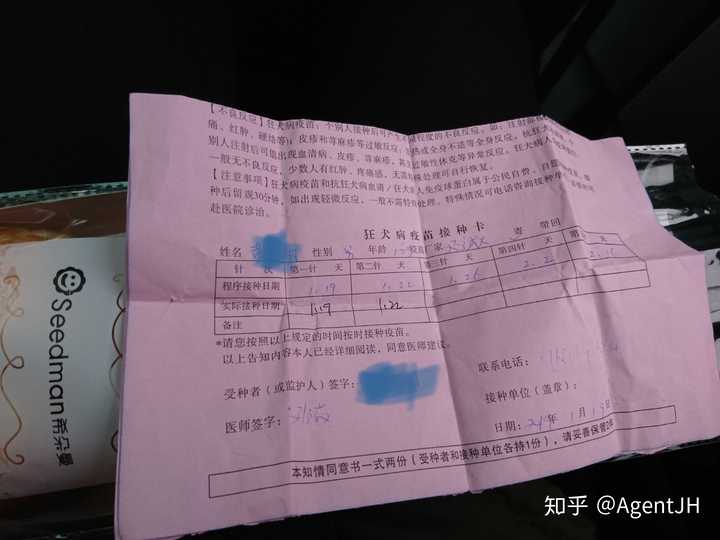 【不良反应】狂犬病疫苗：个别人接种后可产生不同程度的不良反应。如：注射部位
痛、红肿、硬结等；皮疹和荨麻疹等过敏反应；发热或全身不适等全身反应。抗狂
别人注射后可能出现血清病、皮疹、荨麻疹，甚至过敏性休克等异常反应。狂犬病人
一般无不良反应，少数人有红肿、疼痛感，无需特殊处理可自行恢复。
【注意事项】狂犬病疫苗和抗狂犬病血清/狂犬病人免疫球蛋白属于公民自费、自愿
种后留观30分钟，如出现轻微反应，一般不需特殊处理。特殊情况可电话咨询接种单
赴医院诊治。
狂犬病疫苗接种卡
姓名 性别 男 年龄 疫苗厂家
针 次 第一针 天 第二针 天 第三针 天 第四针 天
程序接种日期 1.19 1.22 1.26 2.2
实际接种日期 1.19 1.22
备注
*请您按照以上规定的时间按时接种疫苗。
以上告知内容本人已经详细阅读，同意医师建议。
受种者（或监护人）签字： 联系电话：
医师签字： 接种单位（盖章）：
日期： 年 1月 日
本知情同意书一式两份（受种者和接种单位各持1份），请妥善保管
Seedman希朵曼
知乎 @AgentJH